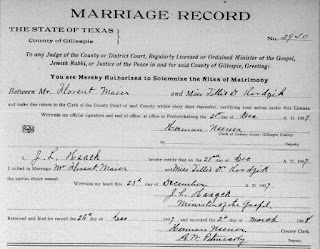 MARRIAGE RECORD
THE STATE OF TEXAS
County of Gillespie
No. 2950
To any Judge of the County or District Court, Regularly Licensed or Ordained Minister of the Gospel,
Jewish Rabbi, or Justice of the Peace in and for said County of Gillespie, Greeting:
You are Hereby Authorized to Solemnize the Rites of Matrimony
Between Mr. Florent Maier and Miss Tillie D. Kordzik
and make due return to the Clerk of the County Court of said County within sixty days thereafter, certifying your action under this License.
Witness my official signature and seal of office, at Fredericksburg the 21st of Dec A. D. 1907.
Herman
Clerk of the County Court, Gillespie County
By Deputy
I, J. L. Haack hereby certify that on the 21st day of Dec A. D. 1907
I united in Marriage Mr Florent Maier and Miss Tillie D. Kordzik
the parties above named.
Witness my hand this 21st day of December A. D. 1907
J. L. Haack
Minister of the Gospel
Returned and filed for record the 28th day of Dec 1907, and recorded the 2nd day of March 1908
Herman County Clerk
Deputy